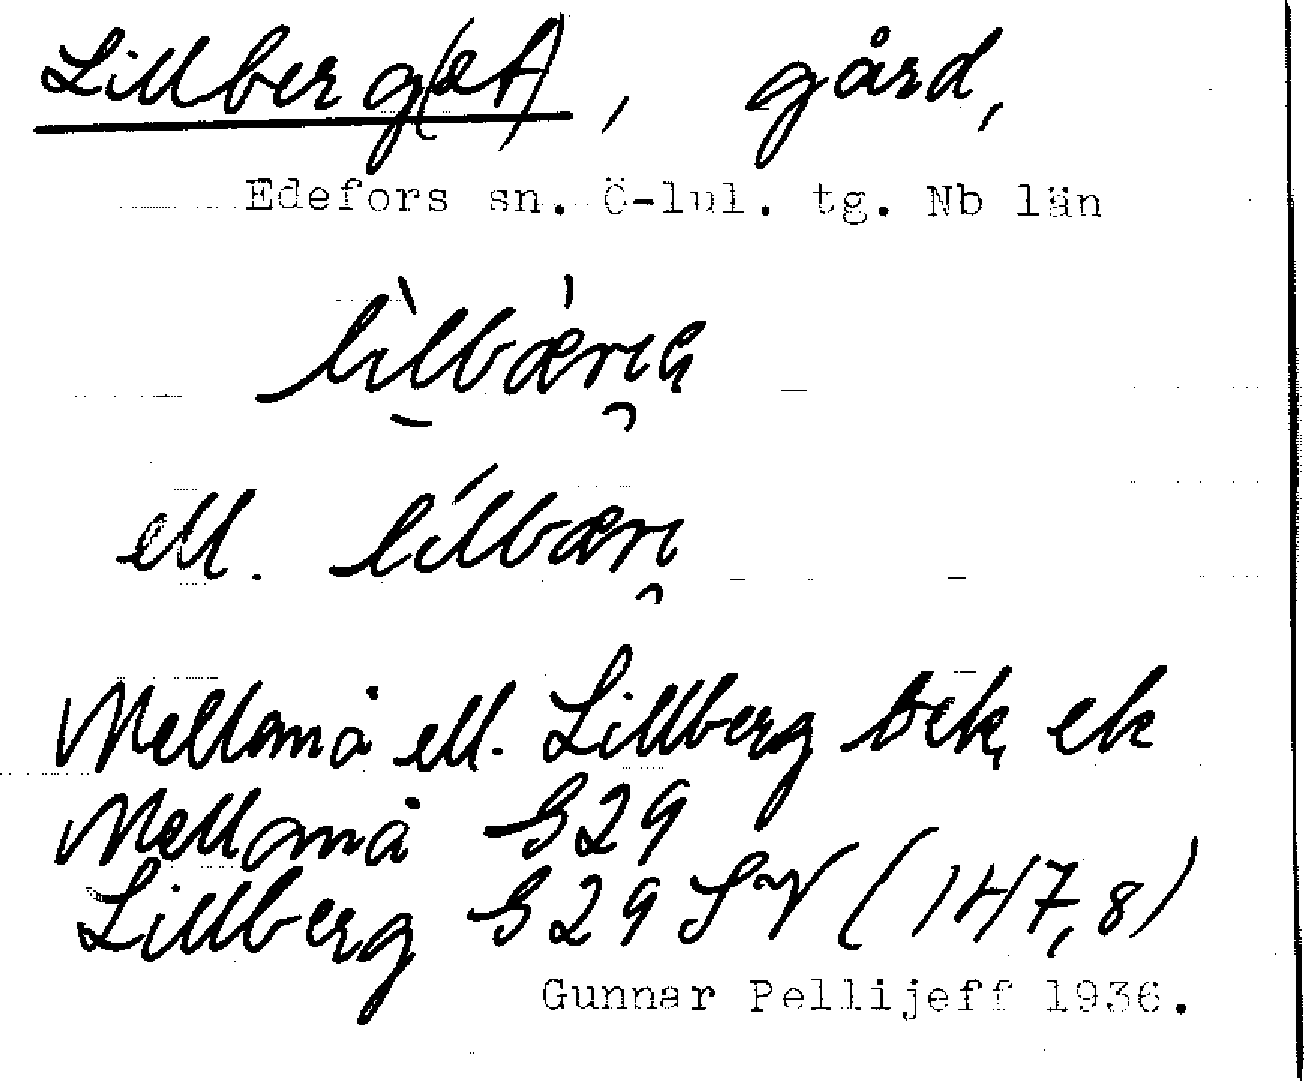 Lillberg(et), gård,
Edefors sn. Ö-lul. tg. Nb län
ell.
Mellanå ell. Lillberg bek, ek
Mellanå G29
Lillberg G29 SV (147,8)
Gunnar Pellijeff 1936.